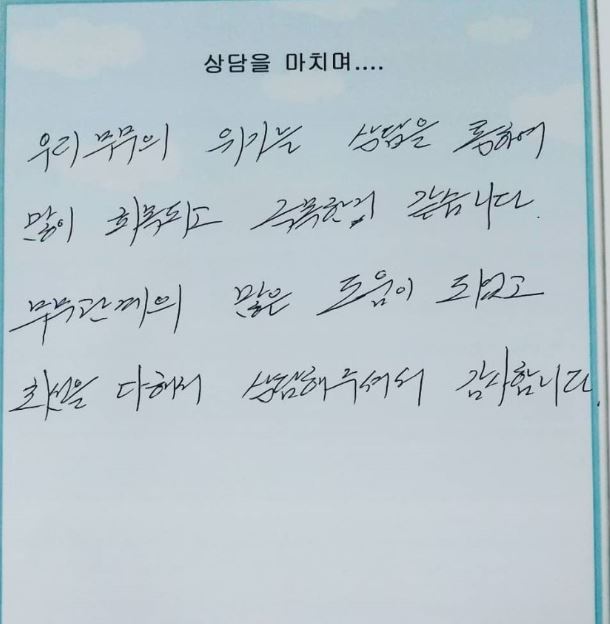 상담을 마치며....
우리 부부의 위기는 상담을 통하여
많이 회복되고 극복한거 같습니다.
부부관계의 많은 도움이 되었고
최선을 다해서 상담해주셔서 감사합니다.